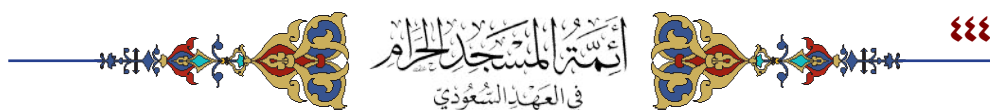 ٤٤٤
أَئِمَّةُ المَسْجِدِ الحَرَامِ
فِي العَهْدِ السُّعُودِيِّ